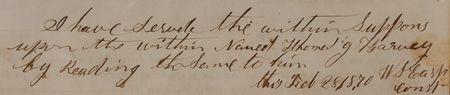 I have Served the within Suppons
upon the within Named Thomas G Harvey
by Reading the Same to him
this Feb 28 1870 W S Earp
Const